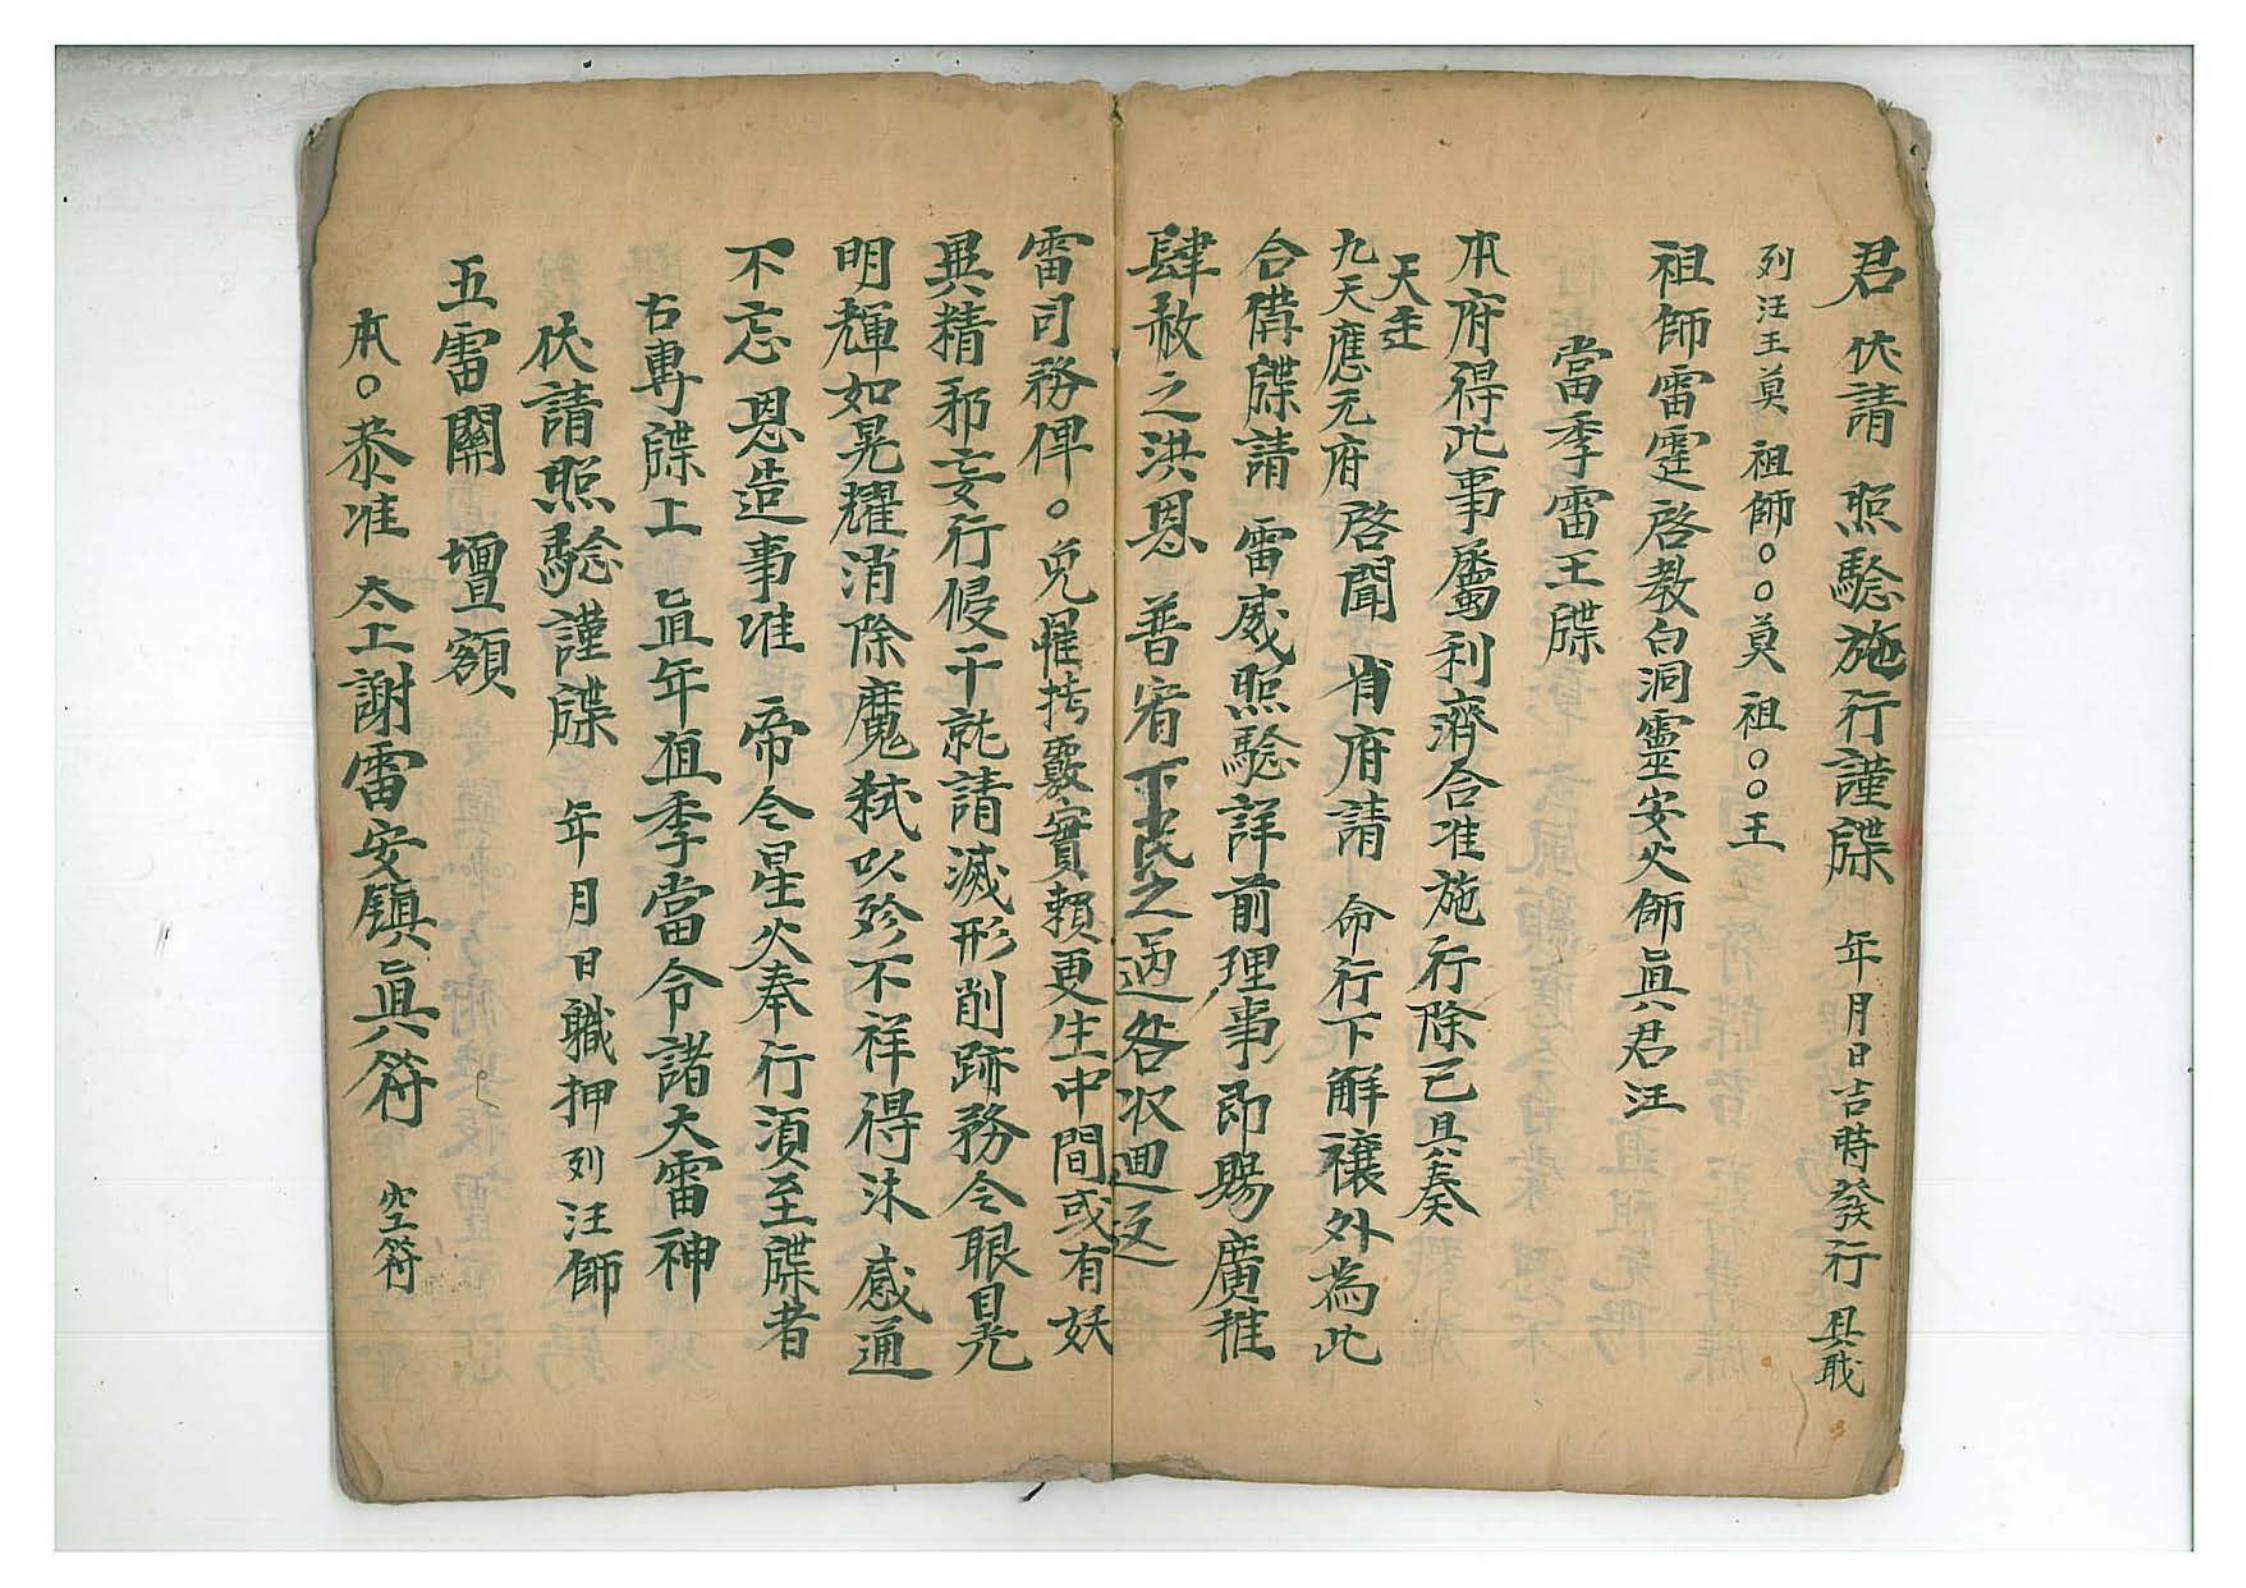 君 伏請 照驗施行謹牒 年月日吉時發行 具戝
列汪王莫 祖師○○莫 祖○○王
祖師雷霆啓教白洞靈安火師眞君汪
當季雷王牒
本府得此事屬利濟合准施行除已具奏
天
九天應元府 啓聞 省府請 命行下解禳外為此
合備牒請 雷威照驗詳前理事即賜廣推
肆赦之洪恩 普宥下民之過咎收迴返
雷司務俾○免罹拷覈實賴更生中間或有妖
異精邪妄行侵干就請滅形削跡務令眼晃
明輝如晃耀消除魔弒以殄不祥得沐 感通
不忘 恩造事准 帝令星火奉行須至牒者
右專牒上 直年值季當令諸大雷神
伏請照驗謹牒 年月日職押列汪師
五雷關 壇額
本○恭准 太上謝雷安鎮眞符 空符